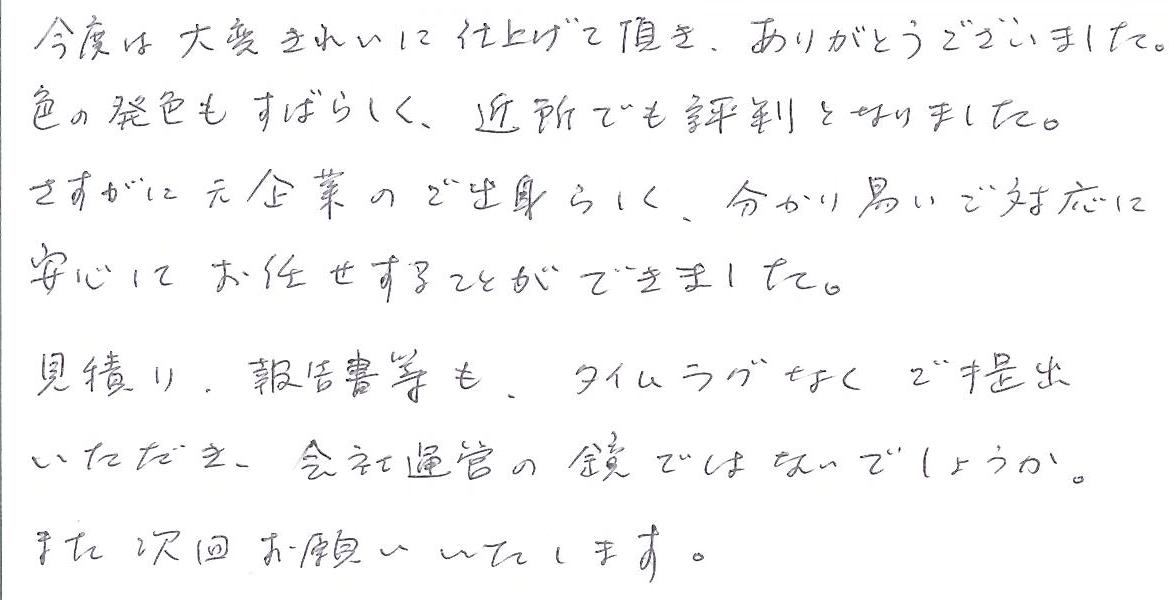 今度は大変きれいに仕上げて頂き、ありがとうございました。
色の発色もすばらしく、近所でも評判となりました。
さすがに元企業のご出身らしく、分かり易いご対応に
安心してお任せすることができました。
見積り、報告書等も、タイムラグなくご提出
いただき、会社運営の鏡ではないでしょうか。
また次回お願いいたします。